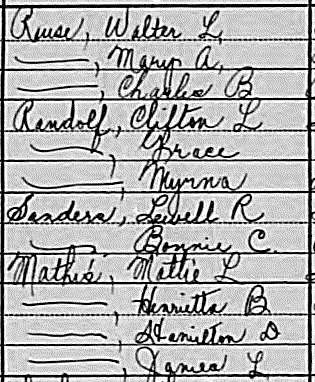 Ruise, Walter L.
——, Mary A,
——, Charles B
Randolf, Clifton L
——, Grace
——, Myrna
Sanders, Lewell R
—— Bonnie C.
Mathis, Mattie L
——, Henrietta B
——, Hamilton D
——, James L